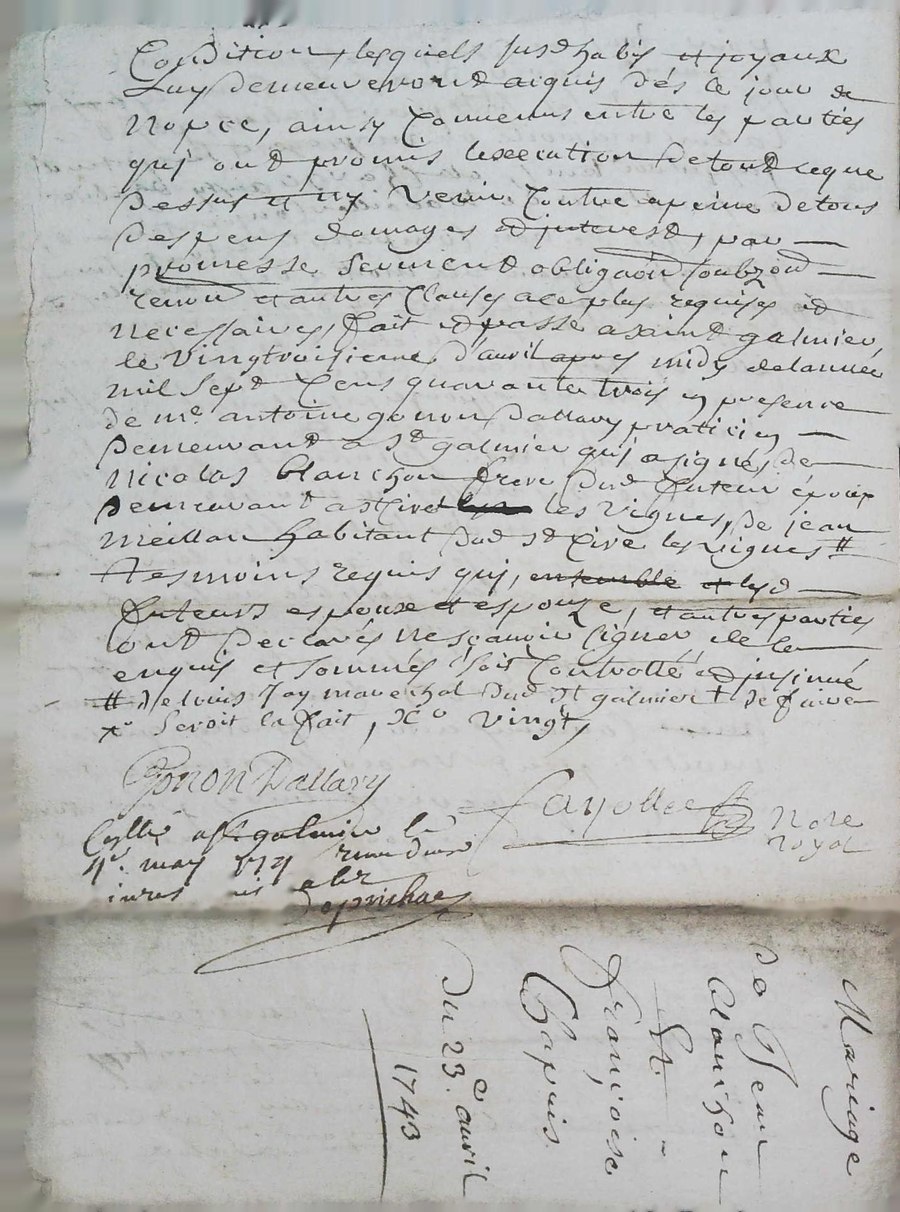 Condition, lesquels susd habis et joyaux
Luy demeureront aiquis dés le jour de
nopce, ainsy convenus entre les parties
quj ont promis lexecution de tout ceque
dessus et ny venir contre apeine detous
despens domages et jnterest, par
promesse serment obligaon soubzon
renon et autres clauses ace plus requises et
necessaires, fait et passé asaint galmier
le vingtroisieme d'auril apres midy delannée
mil sept cens quarante trois en presence
de me antoine gonon dallary praticien
demeurant a st galmier quj a signé, de
Nicolas blanchon frere dud futeur époux
demeurant a st Ciré les vignes, de jean
meillan habitant dud st Ciré les vignes #
tesmoins requis quj, ensemble et lesd
futeurs espoux et espouze, et autres parties
ont declarés ne sçauoir signer de ce
enquis et sommés soit controllé et jnsinué
# de louis Jay marechal dud st galmier + de faire
x seroit ce fait, vingt
Gonon Dallary
Fayolle Nore
royal
a st galmier le
may
Mariage
de Jean
blanchon
Et
Françoise
Chapuis
Du 23e. auril
1743